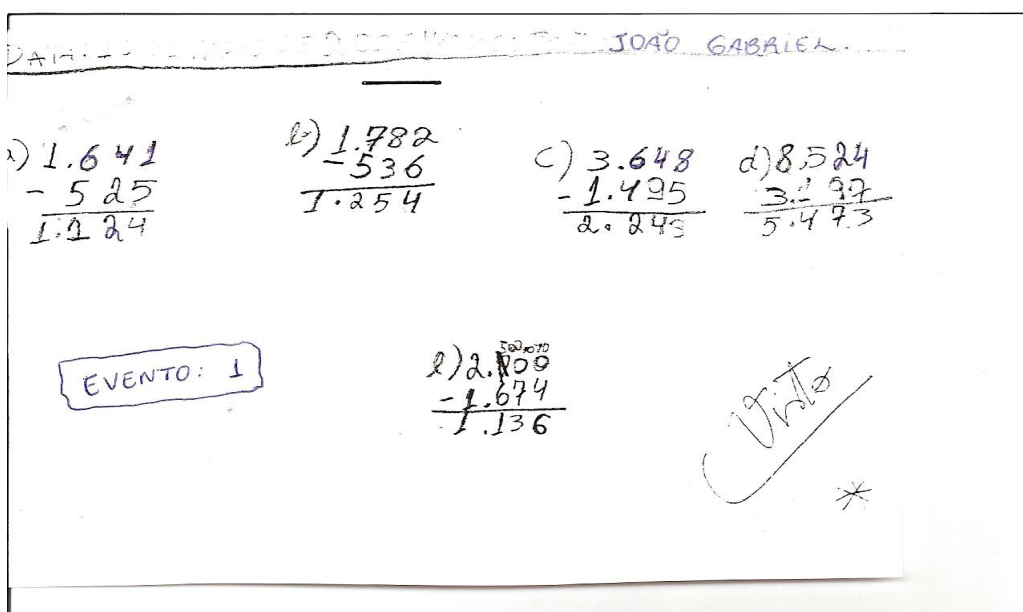 JOÃO GABRIEL.
a) 1.641
- 525
1.124
b) 1.782
- 536
1.254
c) 3.648
- 1.495
2.243
d) 8.524
3.197
5.473
EVENTO: 1
e) 2.700
- 1.674
1.136
Visto